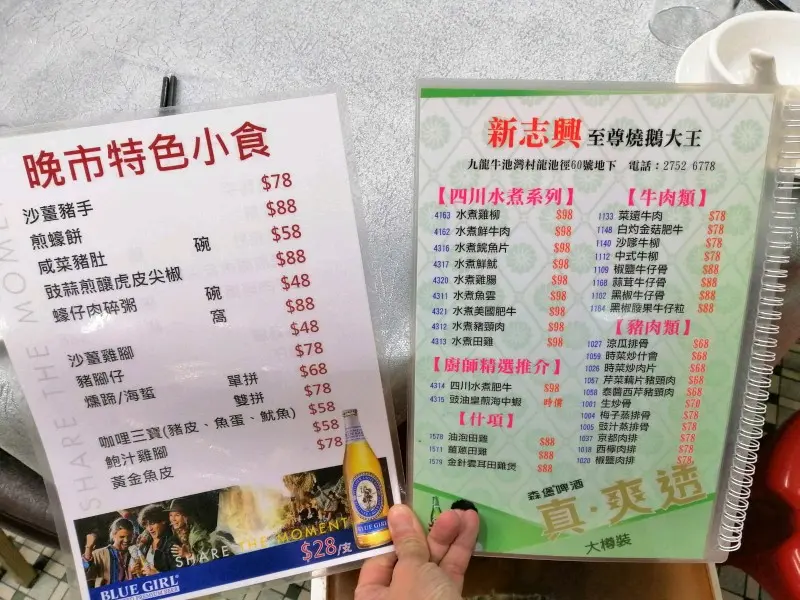 晚市特色小食
$78
沙薑豬手
$88
煎蠔餅
$58
咸菜豬肚 碗
$88
豉蒜煎釀虎皮尖椒
$48
蠔仔肉碎粥 碗
$88
窩
$48
沙薑雞腳
$78
豬腳仔
$68
燻蹄/海蜇 單拼
$78
雙拼
$58
咖哩三寶(豬皮、魚蛋、魷魚)
$58
鮑汁雞腳
$78
黃金魚皮
SHARE THE MOMENT
SHARE THE MOMENT
$28/支
BLUE GIRL
BLUE GIRL
新志興 至尊燒鵝大王
九龍牛池灣村龍池徑60號地下 電話：2752 6778
【四川水煮系列】
4163 水煮雞柳 $98
4162 水煮鮮牛肉 $98
4316 水煮鯇魚片 $98
4317 水煮鮮魷 $98
4320 水煮雞腸 $98
4311 水煮魚雲 $98
4321 水煮美國肥牛 $98
4312 水煮豬頸肉 $98
4313 水煮田雞 $98
【廚師精選推介】
4314 四川水煮肥牛 $98
4315 豉油皇煎海中蝦 時價
【什項】
1570 油泡田雞 $88
1571 薑蔥田雞 $88
1579 金針雲耳田雞煲 $88
【牛肉類】
1133 菜遠牛肉 $78
1148 白灼金菇肥牛 $78
1140 沙嗲牛柳 $78
1112 中式牛柳 $78
1109 椒鹽牛仔骨 $88
1168 蒜茸牛仔骨 $88
1102 黑椒牛仔骨 $88
1184 黑椒腰果牛仔粒 $88
【豬肉類】
1027 涼瓜排骨 $68
1059 時菜炒什會 $68
1026 時菜炒肉片 $68
1057 芹菜藕片豬頸肉 $68
1058 泰醬西芹豬頸肉 $68
1001 生炒骨 $70
1004 梅子蒸排骨 $78
1005 豉汁蒸排骨 $78
1037 京都肉排 $78
1018 西檸肉排 $78
1020 椒鹽肉排 $78
森堡啤酒
真·爽透
大樽裝